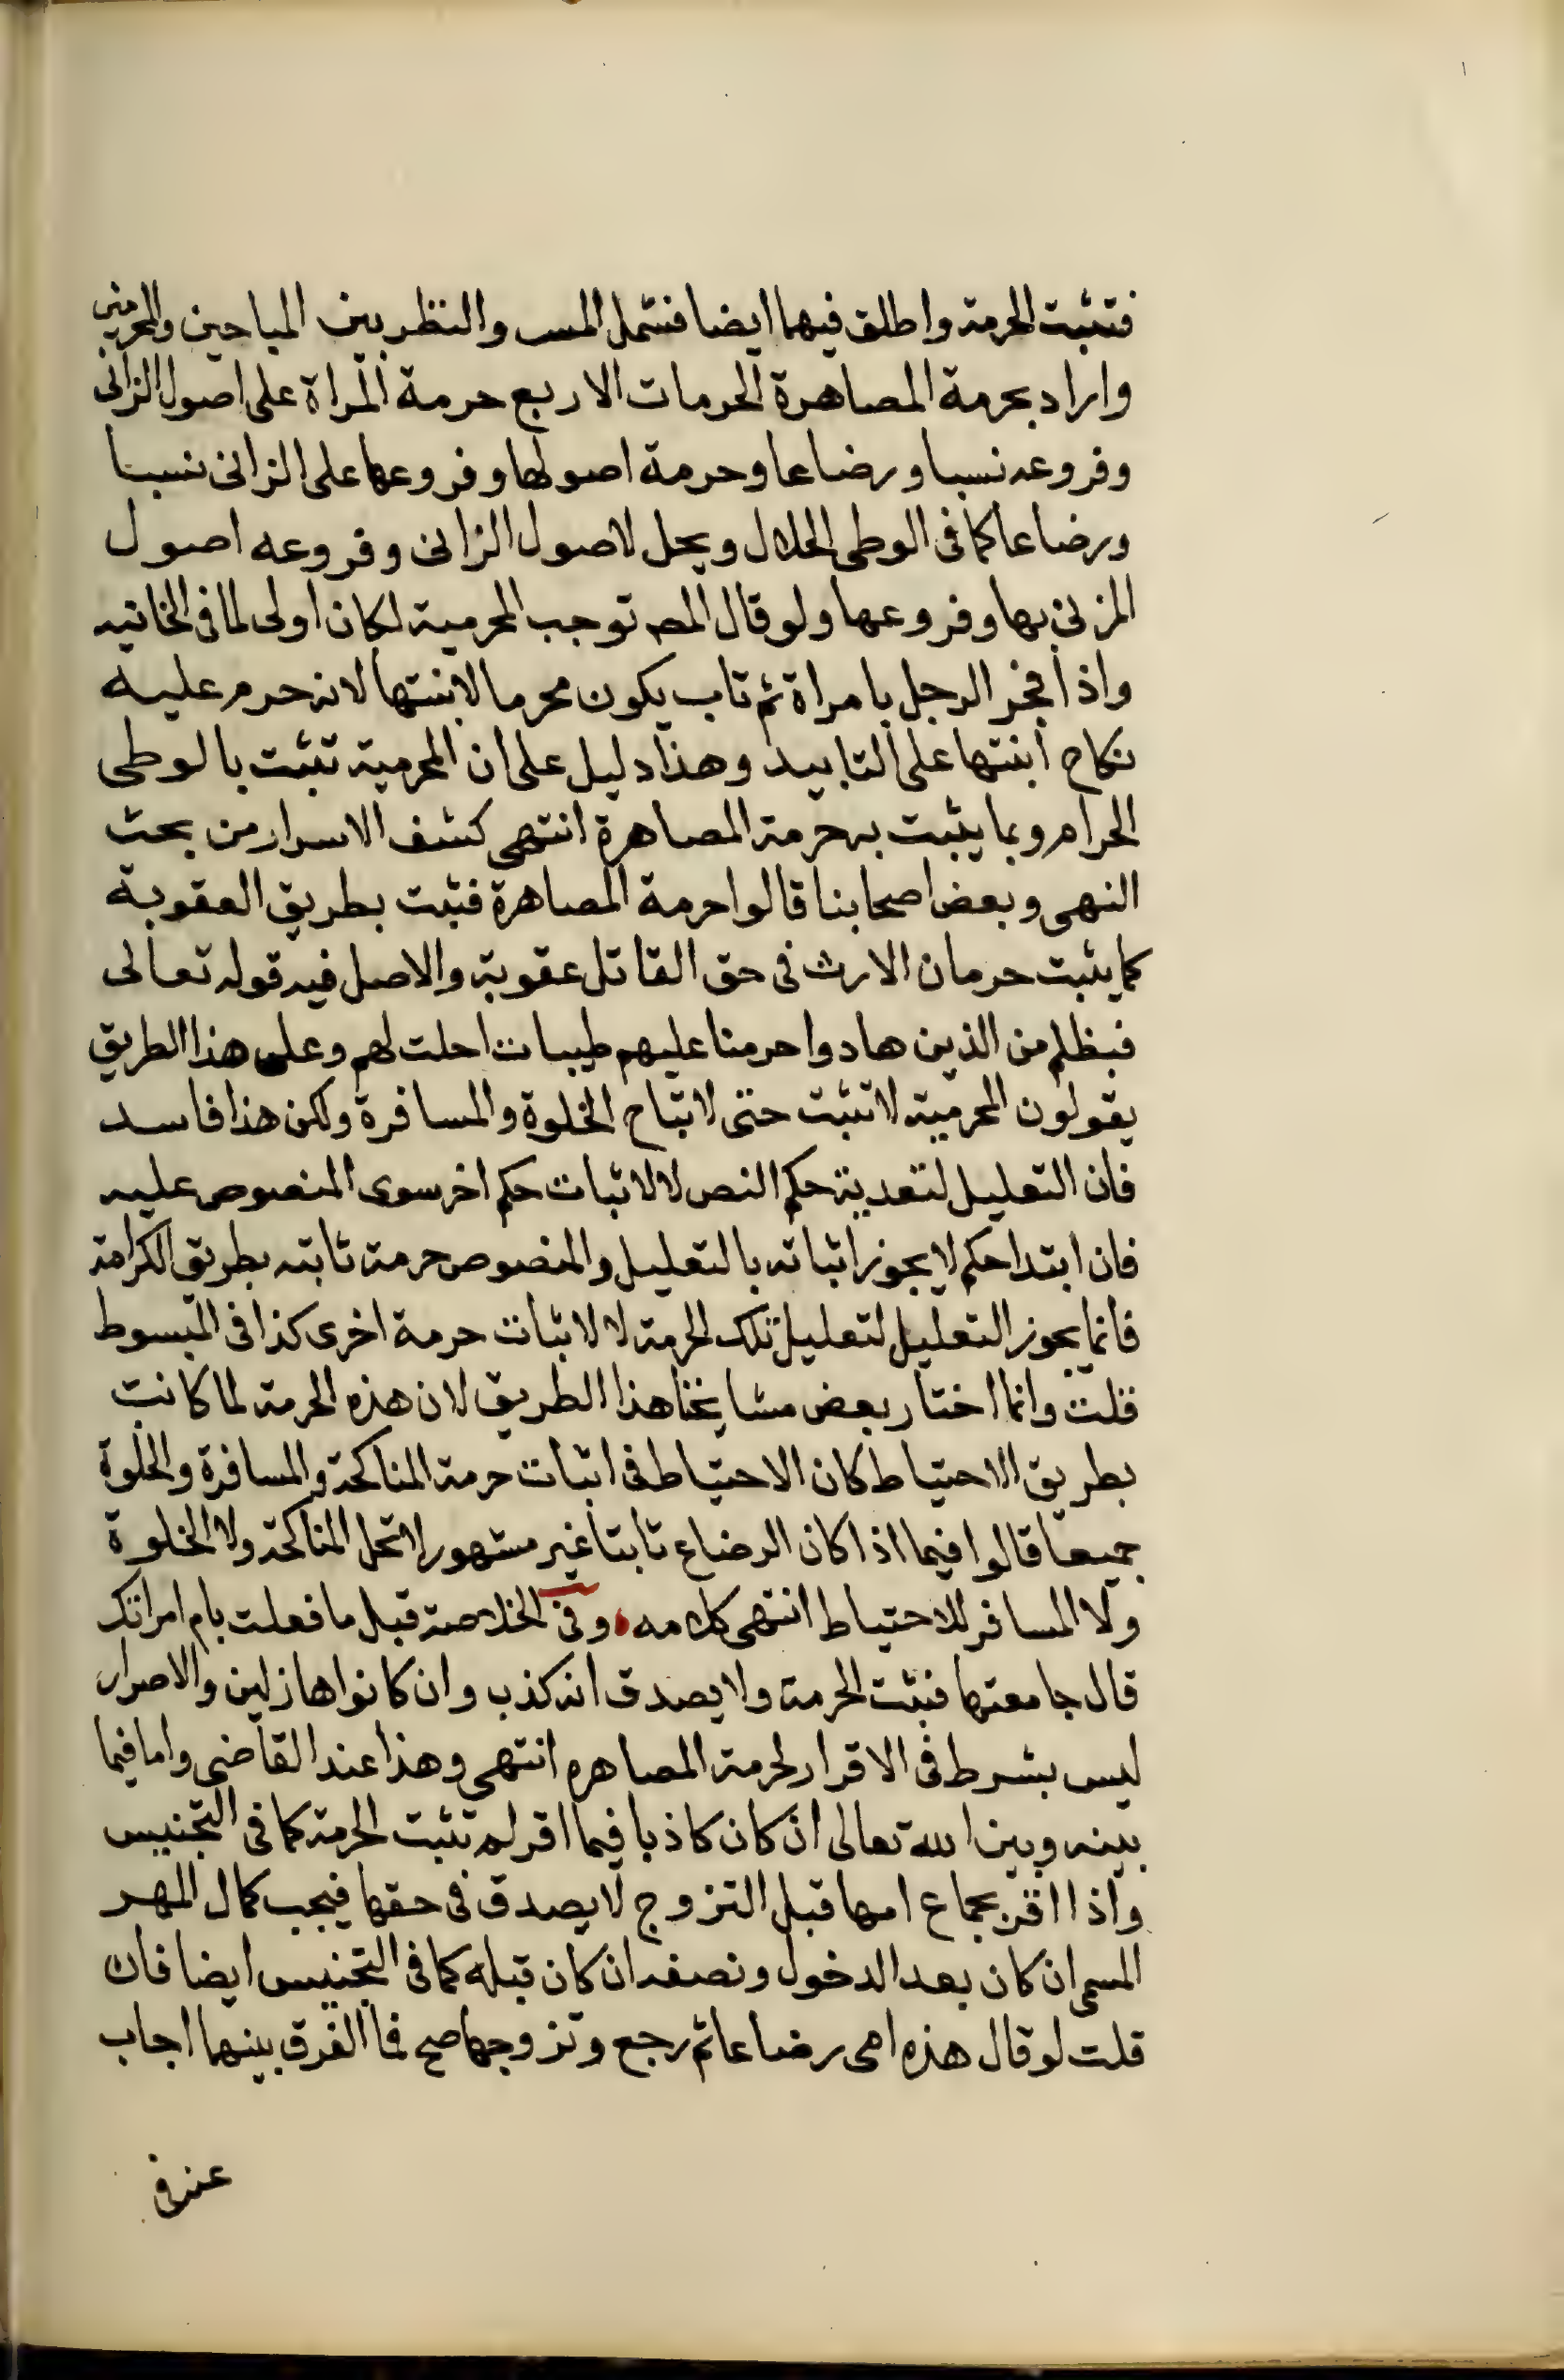 فتثبت الحرمة واطلق فيهما ايضا فتشمل المس والنظر بين المباحين والمحرمين
واراد بحرمة المصاهرة الحرمات الاربع حرمة المراة على اصول الزانى
وفروعه نسبا ورضاعا وحرمة اصولها وفروعها على الزانى نسبا
ورضاعا كما فى الوطى الحلال ويحل لاصول الزانى وفروعه اصول
المزنى بها وفروعها ولو قال المصـ توجب المحرمية لكان اولى لما فى الخانيه
واذا فجر الرجل بامراة ثم تاب يكون محرما لابنتها لانه حرم عليه
نكاح ابنتها على التابيد وهذا دليل على ان المحرمية تثبت بالوطى
الحرام وبما يثبت به حرمة المصاهرة انتهى كشف الاسرار من بحث
النهى وبعض اصحابنا قالوا حرمة المصاهرة فثبت بطريق العقوبة
كما يثبت حرمان الارث فى حق القاتل عقوبة والاصل فيه قوله تعالى
فبظلم من الذين هادوا حرمنا عليهم طيبات احلت لهم وعلى هذا الطريق
يقولون المحرمية لا تثبت حتى لا تباح الخلوة والمسافرة ولكن هذا فاسد
فان التعليل لتعدية حكم النص لا لاثبات حكم اخر سوى المنصوص عليه
فان ابتدا حكم لا يجوز اثباته بالتعليل والمنصوص حرمة ثابته بطريق الكرامة
فانما يجوز التعليل لتعليل تلك الحرمة لا لاثبات حرمة اخرى كذا فى المبسوط
قلت وانما اختار بعض مشايخنا هذا الطريق لان هذه الحرمة لما كانت
بطريق الاحتياط كان الاحتياط فى اثبات حرمة المناكحة والمسافرة والخلوة
جميعا قالوا فيما اذا كان الرضاع ثابتا غير مشهور لا تحل المناكحة ولا الخلوة
ولا المسافر للاحتياط انتهى كلامه وفى الخلاصة قيل ما فعلت بام امراتك
قال جامعتها فثبت الحرمة ولا يصدق انه كذب وان كانوا هازلين والاصرار
ليس بشرط فى الاقرار لحرمة المصاهره انتهى وهذا عند القاضى واما فيما
بينه وبين الله تعالى ان كان كاذبا فيما اقر لم تثبت الحرمة كما فى التجنيس
واذا اقر بجماع امها قبل التزوج لا يصدق فى حقها فيجب كمال المهر
المسمى ان كان بعد الدخول ونصفه ان كان قبله كما فى التجنيس ايضا فان
قلت لو قال هذه امى رضاعا ثم رجع وتزوجها صح فما الفرق بينهما اجاب
عنه فى